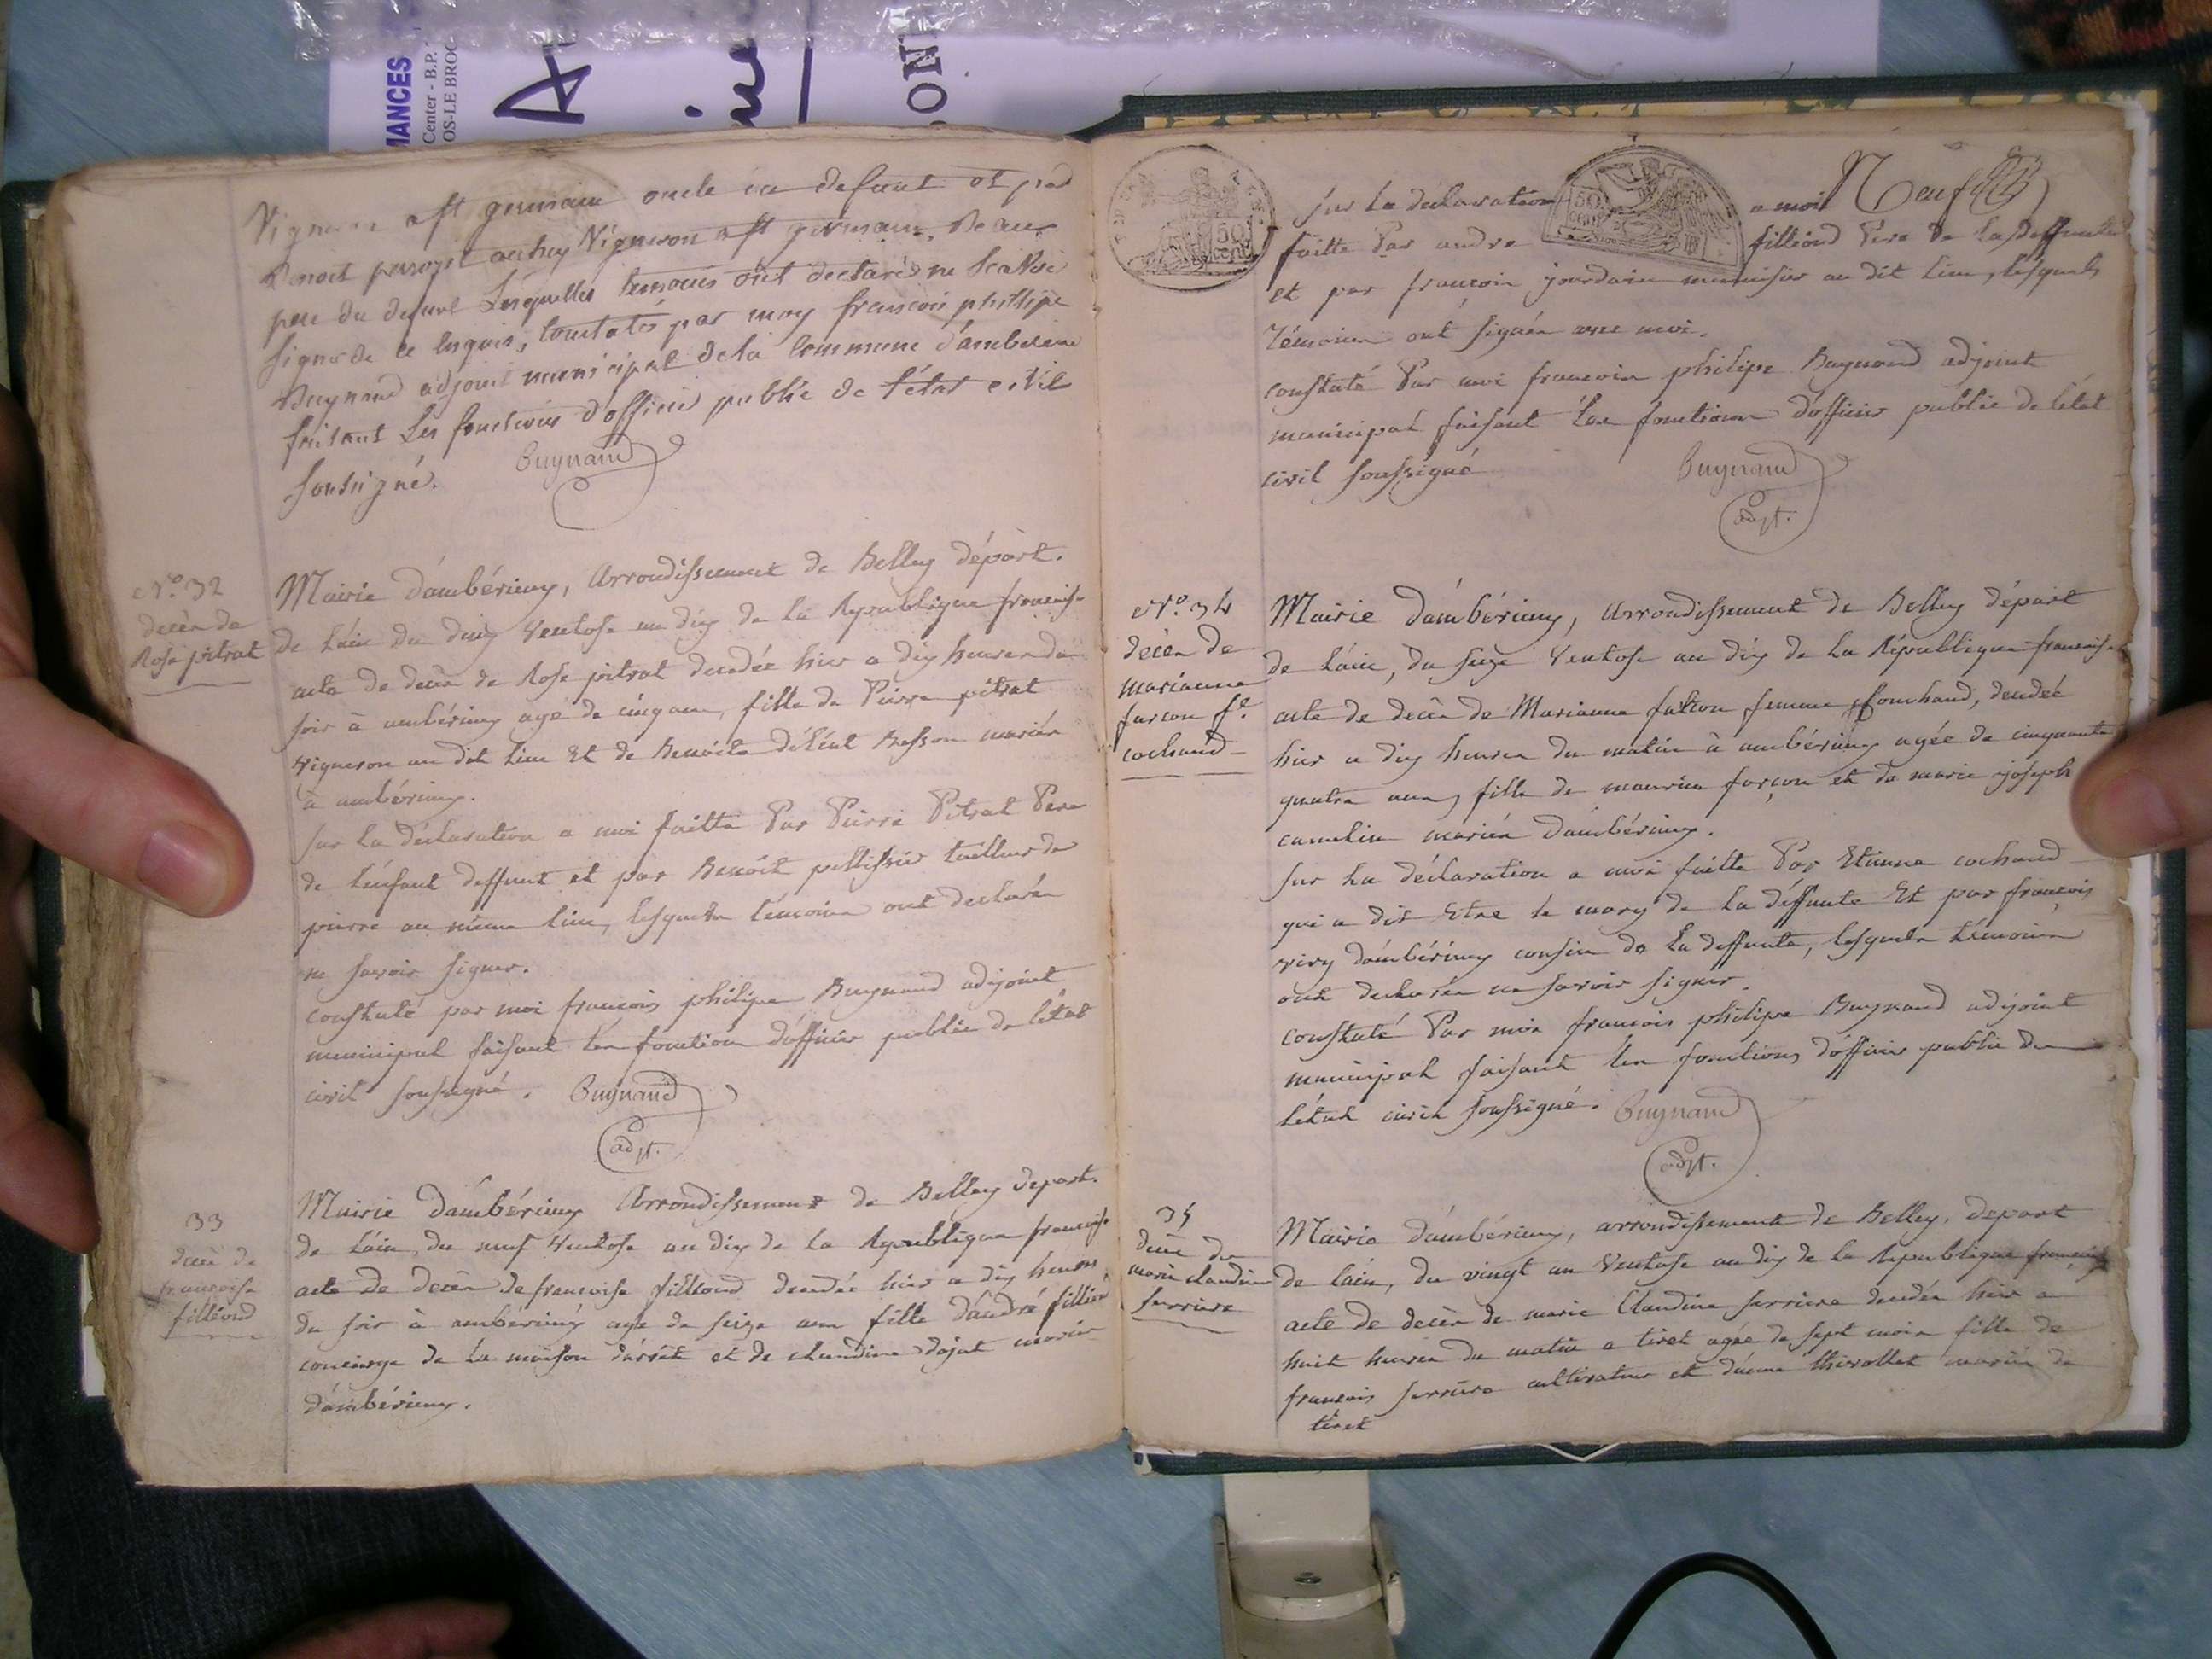 MANCES
Center - B.P.
OS-LE BROC-
Vigneron a st germain oncle du defunt et par
Benoit Vigneron a st germain, beau
pere du defunt Lesquelles temoins ont declarés ne scavoir
signer de ce enquis, Constatés par moy françois phillipe
Buynand adjoint municipal de la Commune d'amberieux
faisant Les fonctions d'officier public de l'état civil
soussigné. Buynand
N.o 32
décès de
Rose pitrat
Mairie d'ambérieuy, Arrondissement de Belley départ.
de l'ain du dix Ventose an dix de la Republique française
acte de decès de Rose pitrat decedée hier a dix heures du
soir à ambérieuy agé de cinq ans, fille de Pierre pitrat
vigneron au dit lieu Et de Benoite Besson mariés
à ambérieuy.
sur la déclaration a moi faitte Par Pierre Pitrat Pere
de l'enfant deffunt et par Benoit pellissier tailleur de
pierre au même lieu, lesquels témoins ont declarés
ne savoir signer.
constaté par moi francois philipe Buynand adjoint
municipal faisant les fonction d'officier public de l'état
civil soussigné. Buynand
adjt.
33
decè de
francoise
filliond
Mairie d'ambérieuy Arrondissement de Belley depart.
de l'ain, du neuf Ventose an dix de la Republique francaise
acte de decès de francoise filliond decedée hier a dix heures
du soir à ambérieuy agé de seize ans fille d'andré filliond
concierge de la maison d'arrêt et de claudine dojat mariés
d'ambérieuy.
Neuf
sur la déclaration a moi
faitte Par andre filliond Père de la deffunte
et par françois jourdain menuisier au dit lieu, lesquels
témoins ont signés avec moi.
constaté Par moi francois philipe Buynand adjoint
municipal faisant les fonctions d'officier public de l'état
civil soussigné Buynand
adjt.
N.o 34
décès de
marianne
farcon fe.
cochand
Mairie d'ambérieuy, arrondissement de Belley départ
de l'ain, du seize Ventose an dix de la République francaise
acte de decès de Marianne farcon femme Couchand, decedée
hier a dix heures du matin à ambérieuy agée de cinquante
quatre ans, fille de maurice farçon et de marie joseph
camelin mariés d'ambérieuy.
sur la déclaration a moi faitte Par Etienne cochand
qui a dit Etre le mary de la déffunte Et par françois
viry d'ambérieuy cousin de La deffunte, lesquels témoins
ont declarés ne savoir signer.
constaté Par moi francois philipe Buynand adjoint
municipal faisant les fonctions d'officier public de
l'état civil soussigné. Buynand
adjt.
35
decès de
marie claudine
serriere
Mairie d'ambérieuy, arrondissement de Belley, depart
de l'ain, du vingt un Ventose an dix de la Republique francaise
acte de decès de marie Claudine serriere decedée hier a
huit heures du matin a tiret agée de sept mois fille de
francois serriere cultivateur et d'anne thevollet mariés de
tiret